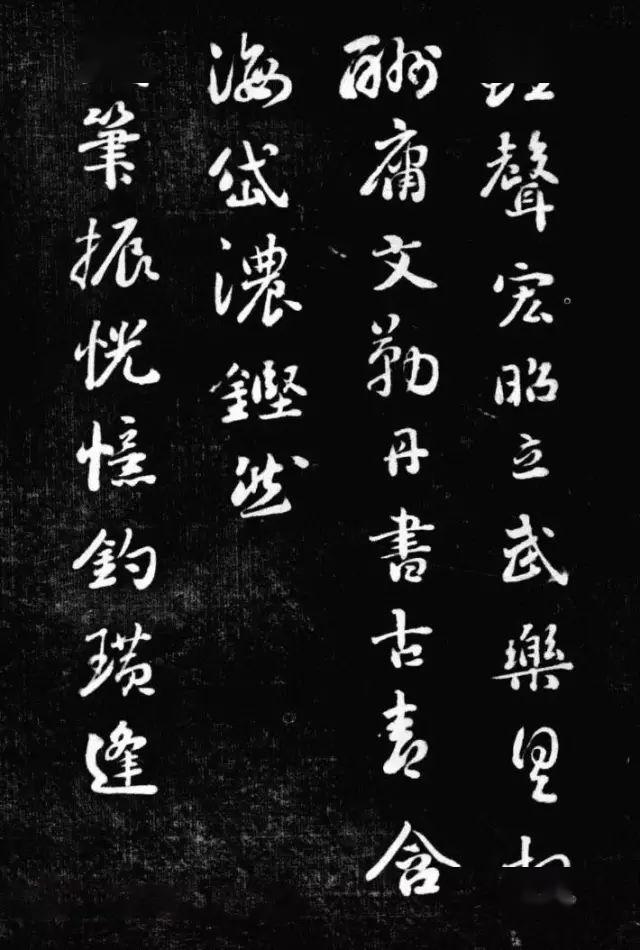 聲宏昭立武樂
酬庸文勒丹書古青含
海岱濃鏗然
筆振恍憶鈞璜逢